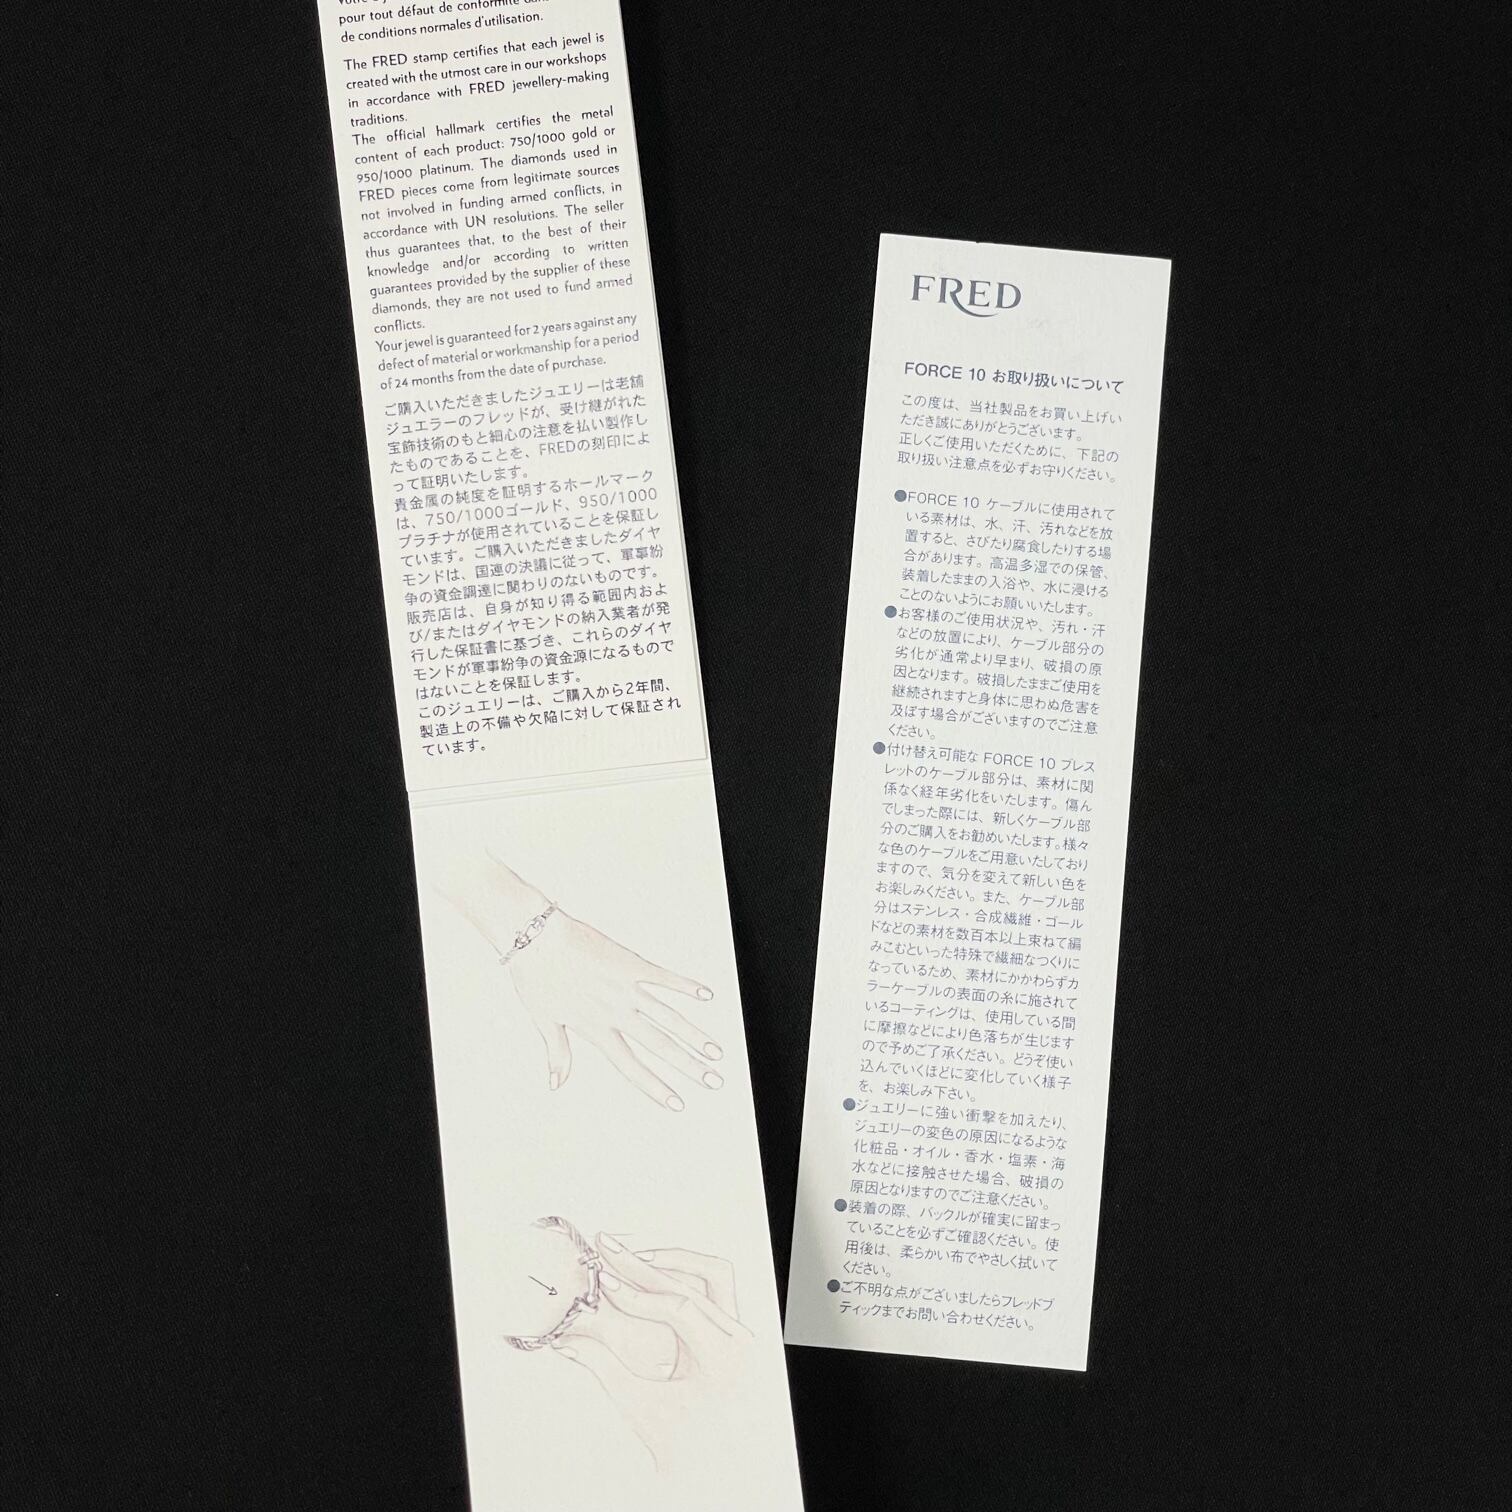 pour tout défaut de conformité
de conditions normales d'utilisation.
The FRED stamp certifies that each jewel is
created with the utmost care in our workshops
in accordance with FRED jewellery-making
traditions.
The official hallmark certifies the metal
content of each product: 750/1000 gold or
950/1000 platinum. The diamonds used in
FRED pieces come from legitimate sources
not involved in funding armed conflicts, in
accordance with UN resolutions. The seller
thus guarantees that, to the best of their
knowledge and/or according to written
guarantees provided by the supplier of these
diamonds, they are not used to fund armed
conflicts.
Your jewel is guaranteed for 2 years against any
defect of material or workmanship for a period
of 24 months from the date of purchase.
ご購入いただきましたジュエリーは老舗
ジュエラーのフレッドが、受け継がれた
宝飾技術のもと細心の注意を払い製作し
たものであることを、FREDの刻印によ
って証明いたします。
貴金属の純度を証明するホールマーク
は、750/1000ゴールド、950/1000
プラチナが使用されていることを保証し
ています。ご購入いただきましたダイヤ
モンドは、国連の決議に従って、軍事紛
争の資金調達に関わりのないものです。
販売店は、自身が知り得る範囲内およ
び/またはダイヤモンドの納入業者が発
行した保証書に基づき、これらのダイヤ
モンドが軍事紛争の資金源になるもので
はないことを保証します。
このジュエリーは、ご購入から2年間、
製造上の不備や欠陥に対して保証され
ています。
FRED
FORCE 10 お取り扱いについて
この度は、当社製品をお買い上げい
ただき誠にありがとうございます。
正しくご使用いただくために、下記の
取り扱い注意点を必ずお守りください。
●FORCE 10 ケーブルに使用されて
いる素材は、水、汗、汚れなどを放
置すると、さびたり腐食したりする場
合があります。高温多湿での保管、
装着したままの入浴や、水に浸ける
ことのないようにお願いいたします。
●お客様のご使用状況や、汚れ・汗
などの放置により、ケーブル部分の
劣化が通常より早まり、破損の原
因となります。破損したままご使用を
継続されますと身体に思わぬ危害を
及ぼす場合がございますのでご注意
ください。
●付け替え可能な FORCE 10 ブレス
レットのケーブル部分は、素材に関
係なく経年劣化をいたします。傷ん
でしまった際には、新しくケーブル部
分のご購入をお勧めいたします。様々
な色のケーブルをご用意いたしており
ますので、気分を変えて新しい色を
お楽しみください。また、ケーブル部
分はステンレス・合成繊維・ゴール
ドなどの素材を数百本以上束ねて編
みこむといった特殊で繊細なつくりに
なっているため、素材にかかわらずカ
ラーケーブルの表面の糸に施されて
いるコーティングは、使用している間
に摩擦などにより色落ちが生じます
ので予めご了承ください。どうぞ使い
込んでいくほどに変化していく様子
を、お楽しみ下さい。
●ジュエリーに強い衝撃を加えたり、
ジュエリーの変色の原因になるような
化粧品・オイル・香水・塩素・海
水などに接触させた場合、破損の
原因となりますのでご注意ください。
●装着の際、バックルが確実に留まっ
ていることを必ずご確認ください。使
用後は、柔らかい布でやさしく拭いて
ください。
●ご不明な点がございましたらフレッドブ
ティックまでお問い合わせください。